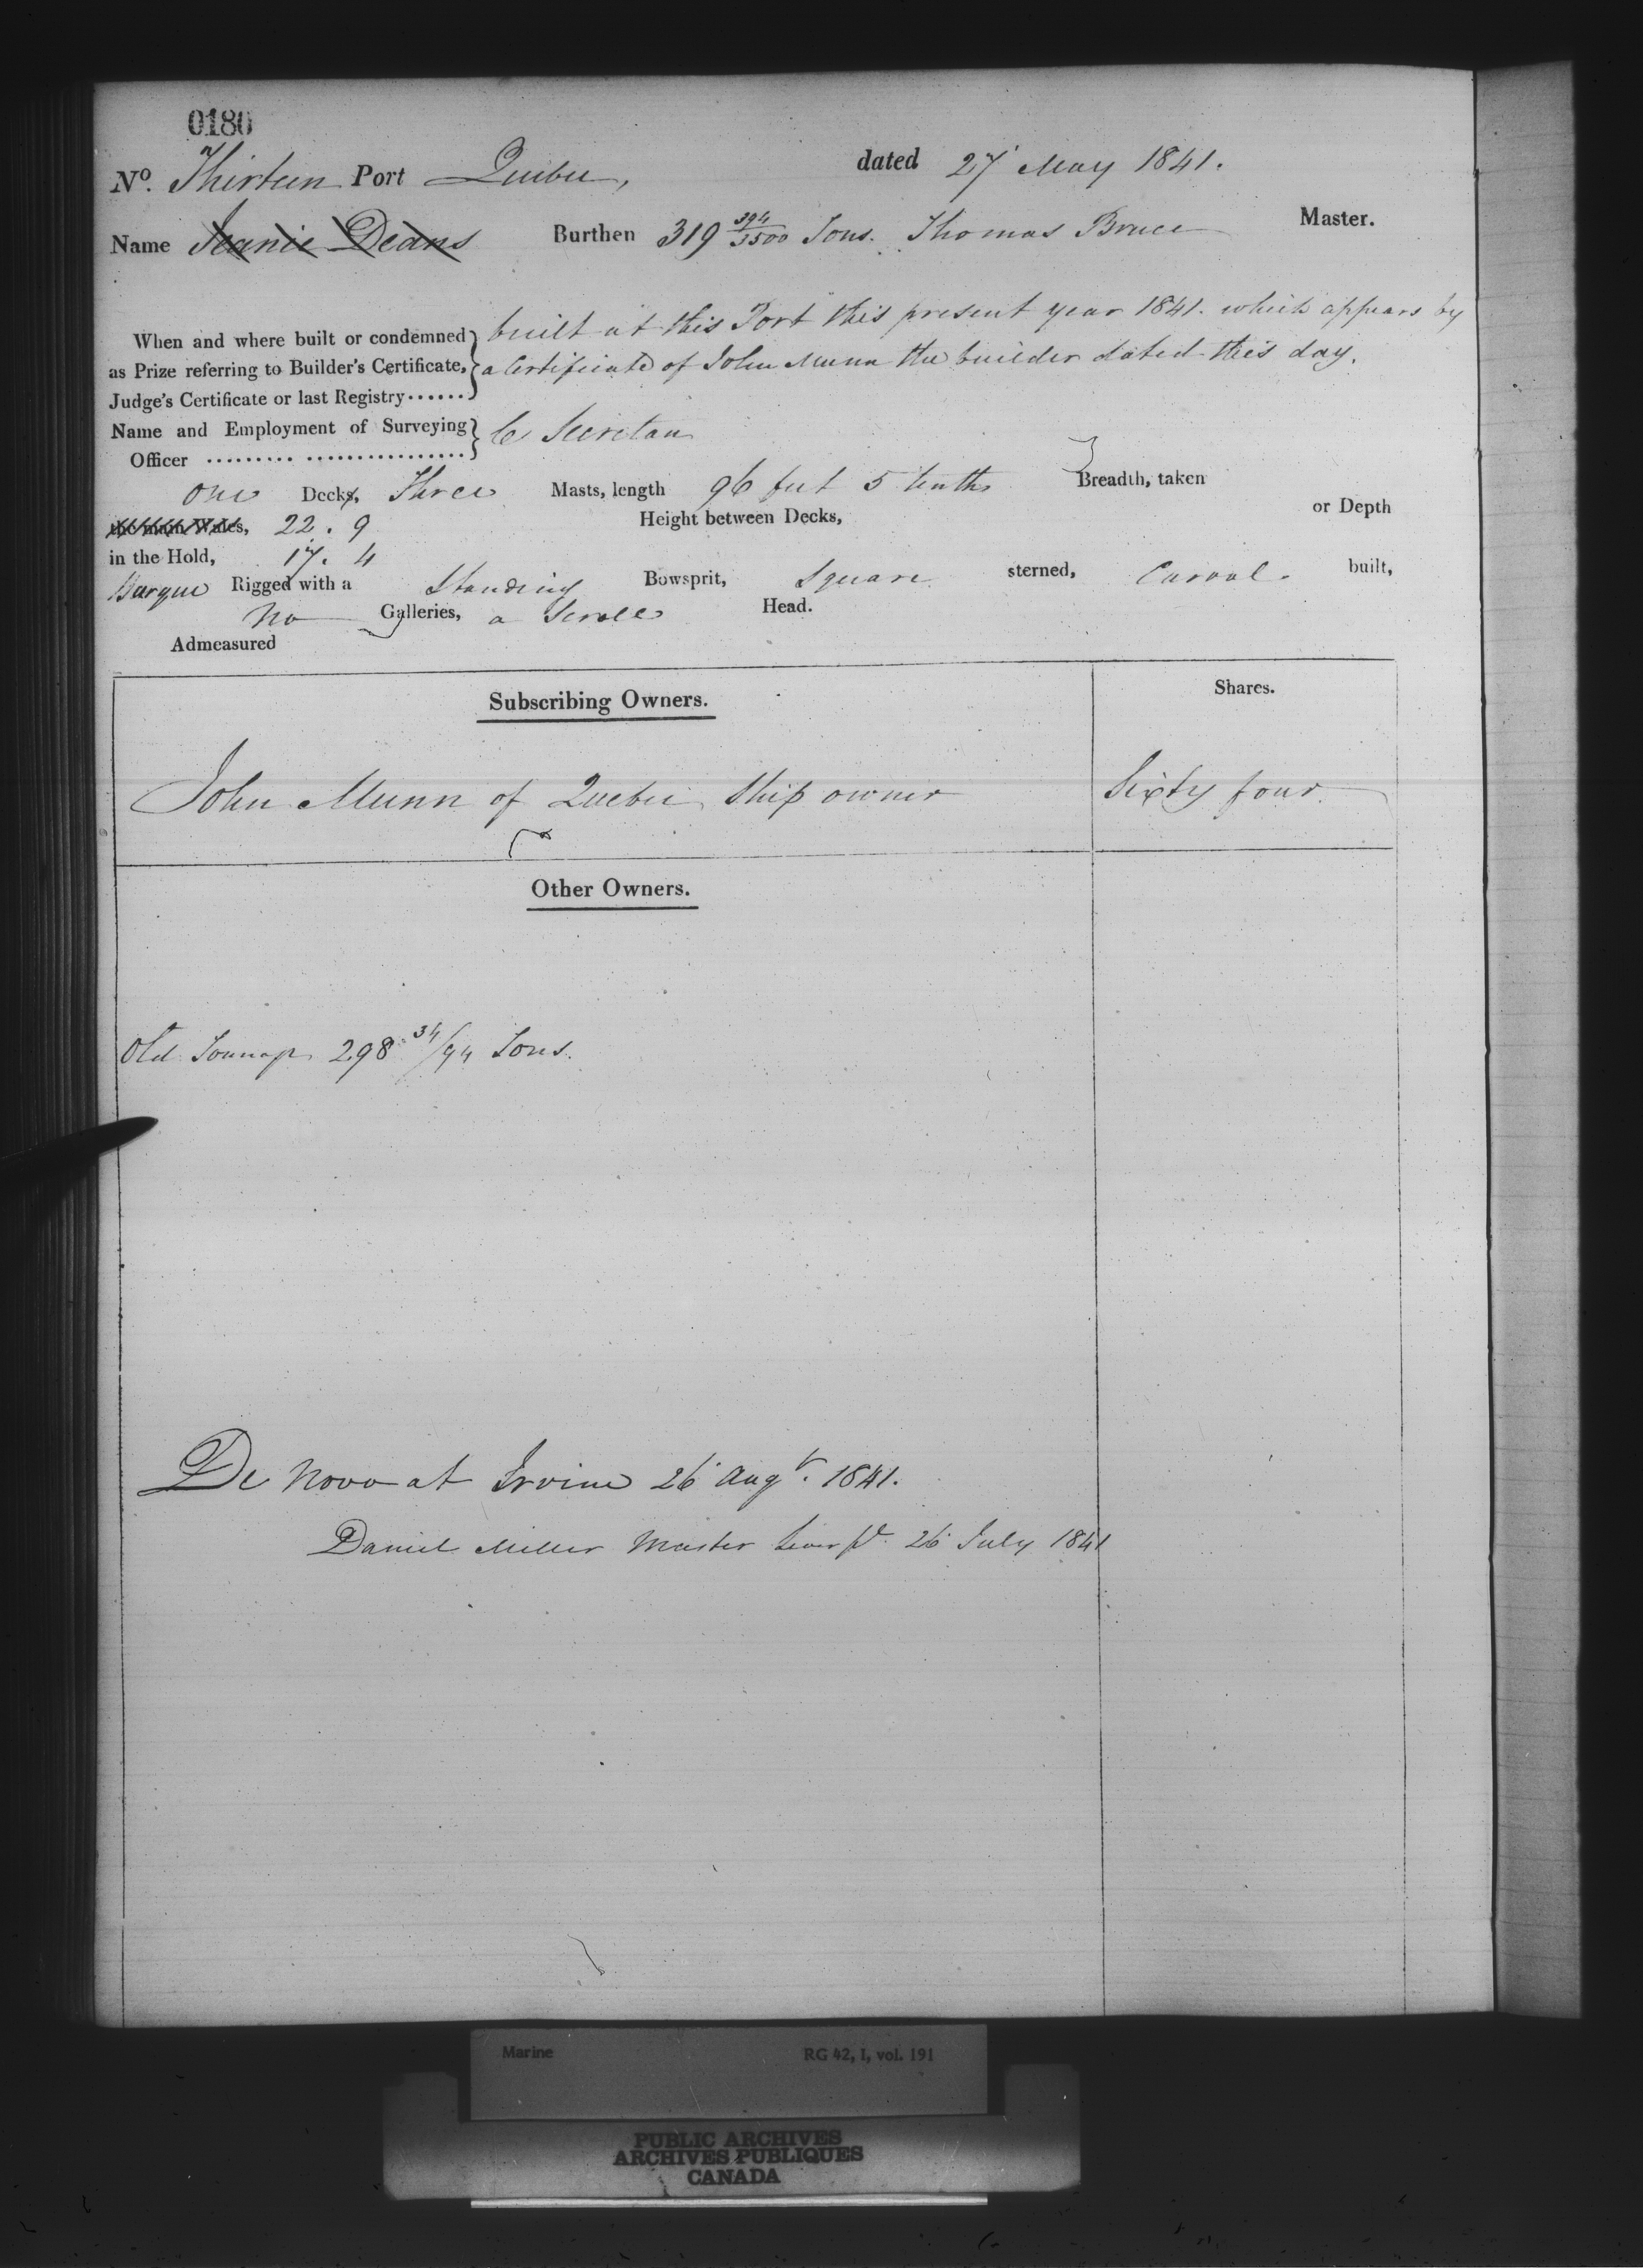 0180
No. Thirteen Port Quebec, dated 27 May 1841.
Name Jeanie Deans Burthen 319 394/3500 Tons. Thomas Bruce Master.
When and where built or condemned built at this Port this present year 1841. which appears by
as Prize referring to Builder's Certificate, a Certificate of John Munn the builder dated this day.
Judge's Certificate or last Registry......
Name and Employment of Surveying C Secretan
Officer ......... ................
one Decks, Three Masts, length 96 feet 5 tenths Breadth, taken
the main Wales, 22.9 Height between Decks, or Depth
in the Hold, 17.4
Barque Rigged with a Standing Bowsprit, Square sterned, Carvel built,
No Galleries, a Scroll Head.
Admeasured
Subscribing Owners. Shares.
John Munn of Quebec Ship owner Sixty four
Other Owners.
Old Tonnage 298 34/94 Tons.
De Novo at Irvine 26 Augt. 1841.
Daniel Miller Master Liverpl 26 July 1841
Marine RG 42, I, vol. 191
PUBLIC ARCHIVES
ARCHIVES PUBLIQUES
CANADA